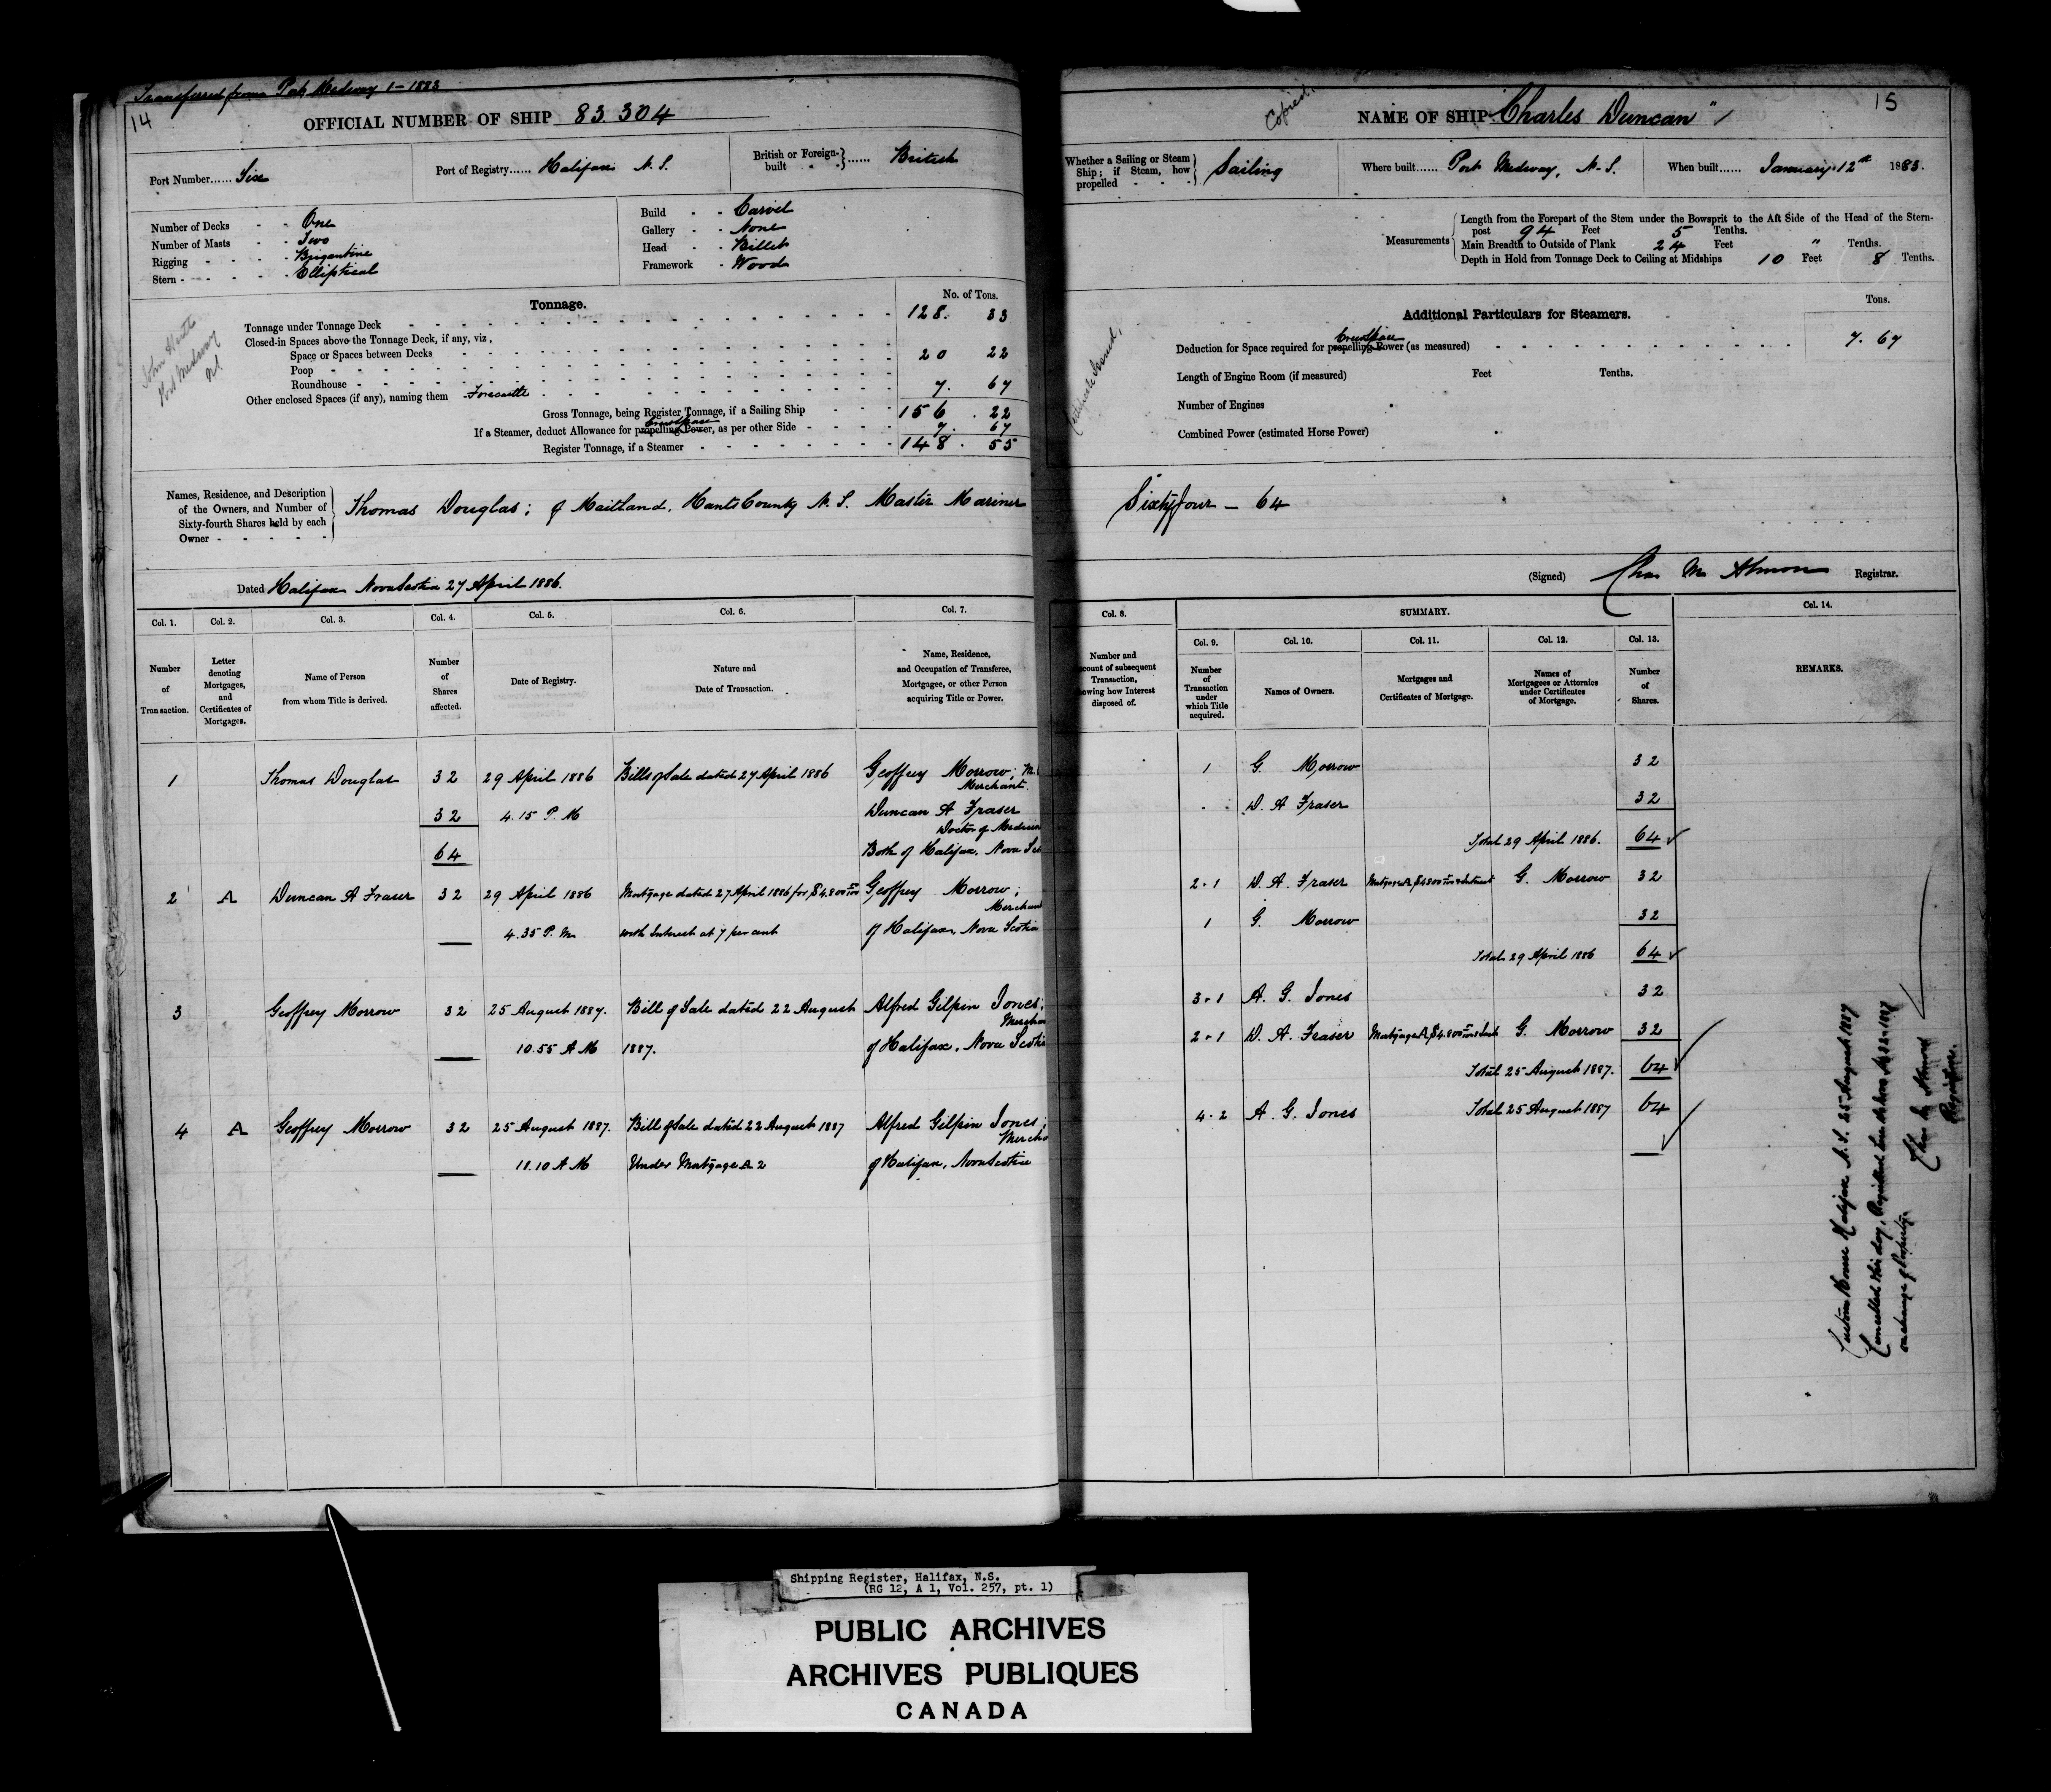 Transferred from Port Medway 1-1883
14
OFFICIAL NUMBER OF SHIP 83.304
Port Number...... Six
Port of Registry...... Halifax N. S.
British or Foreign-built } ...... British
Number of Decks - - One
Number of Masts - - Two
Rigging - - - - Brigantine
Stern - - - - - Elliptical
Build - - Carvel
Gallery - - None
Head - - Billet
Framework - Wood
Tonnage.
No. of Tons.
Tonnage under Tonnage Deck 128. 33
Closed-in Spaces above the Tonnage Deck, if any, viz,
Space or Spaces between Decks
Poop 20 22
Roundhouse
Other enclosed Spaces (if any), naming them Forecastle 7. 67
Gross Tonnage, being Register Tonnage, if a Sailing Ship 156 . 22
Crew Space
If a Steamer, deduct Allowance for propelling Power, as per other Side 7. 67
Register Tonnage, if a Steamer 148 . 55
Port Medway
Names, Residence, and Description
of the Owners, and Number of
Sixty-fourth Shares held by each
Owner
Thomas Douglas; of Maitland, Hants County N. S. Master Mariner
Dated Halifax Nova Scotia 27 April 1886.
Col. 1. Col. 2. Col. 3. Col. 4. Col. 5. Col. 6. Col. 7.
Number of Transaction.
Letter denoting Mortgages, and Certificates of Mortgages.
Name of Person from whom Title is derived.
Number of Shares affected.
Date of Registry.
Nature and Date of Transaction.
Name, Residence, and Occupation of Transferee, Mortgagee, or other Person acquiring Title or Power.
1 Thomas Douglas 32 29 April 1886 Bills of Sale dated 27 April 1886 Geoffrey Morrow;
Merchant.
32 4.15 P. M Duncan A Fraser
Doctor of
64 Both of Halifax, Nova
2 A Duncan A Fraser 32 29 April 1886 Mortgage dated 27 April 1886 for $4.800 Geoffrey Morrow;
4.35 P. M. with Interest at 7 per cent of Halifax, Nova Scotia
3 Geoffrey Morrow 32 25 August 1887. Bill of Sale dated 22 August Alfred Gilpin Jones;
10.55 A M 1887. of Halifax, Nova Scotia
4 A Geoffrey Morrow 32 25 August 1887. Bill of Sale dated 22 August 1887 Alfred Gilpin Jones;
11.10 A M Under Mortgage A 2 of Halifax, Nova Scotia
Copied.
15
NAME OF SHIP "Charles Duncan"
Whether a Sailing or Steam Ship; if Steam, how propelled } Sailing
Where built...... Port Medway, N. S.
When built...... January 12th 1883.
Measurements
Length from the Forepart of the Stem under the Bowsprit to the Aft Side of the Head of the Stern-
post 94 Feet 5 Tenths.
Main Breadth to Outside of Plank 24 Feet " Tenths.
Depth in Hold from Tonnage Deck to Ceiling at Midships 10 Feet 8 Tenths.
Additional Particulars for Steamers.
Tons.
Crew Space
Deduction for Space required for propelling Power (as measured) 7. 67
Length of Engine Room (if measured) Feet Tenths.
Number of Engines
Combined Power (estimated Horse Power)
Sixty four - 64
(Signed) Chas M Almon Registrar.
Col. 8. SUMMARY. Col. 14.
Col. 9. Col. 10. Col. 11. Col. 12. Col. 13.
Number and
count of subsequent
Transaction,
owing how Interest
disposed of.
Number of Transaction under which Title acquired.
Names of Owners.
Mortgages and Certificates of Mortgage.
Names of Mortgagees or Attornies under Certificates of Mortgage.
Number of Shares.
REMARKS.
1 G. Morrow 32
D. A Fraser 32
Total 29 April 1886. 64
2.1 D. A. Fraser Mortgage A $4800 Interest G. Morrow 32
1 G. Morrow 32
Total 29 April 1886 64
3.1 A. G. Jones 32
2.1 D. A. Fraser Mortgage A $4.800 G. Morrow 32
Total 25 August 1887. 64
4.2 A. G. Jones Total 25 August 1887 64
Custom House Halifax N. S. 25 August 1887
Cancelled this day, Registered
on change of Property.
Chas M Almon
Registrar.
Shipping Register, Halifax, N.S.
(RG 12, A 1, Vol. 257, pt. 1)
PUBLIC ARCHIVES
ARCHIVES PUBLIQUES
CANADA